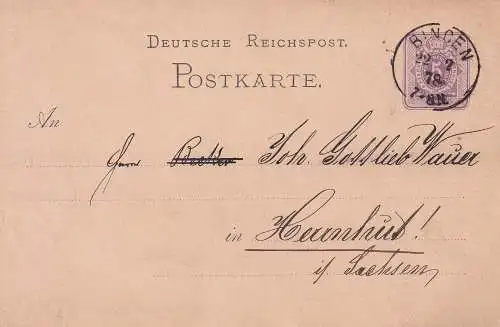 DEUTSCHE REICHSPOST.
POSTKARTE.
BINGEN
7
78
7-8N.
An
Herrn Joh. Gottlieb Wauer
in Herrnhut!
i/ Sachsen